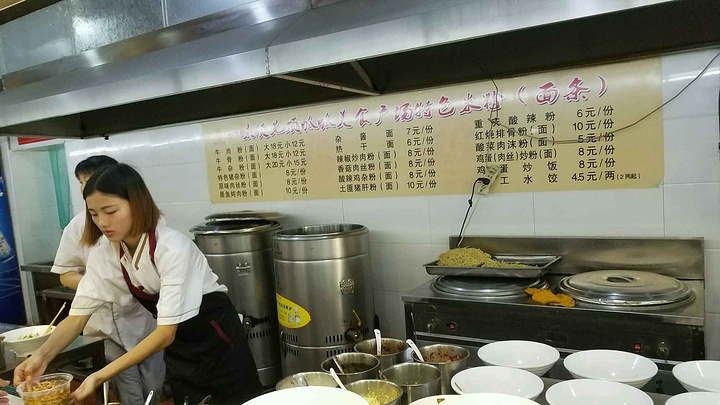 美食广场特色米粉（面条）
牛肉粉(面) 大18元 小12元
牛骨粉(面) 大18元 小12元
牛杂粉(面) 大20元 小15元
特色猪杂粉(面) 8元/份
原味肉丝粉(面) 8元/份
墨鱼炖粉(面) 10元/份
杂酱面 7元/份
热干面 6元/份
辣椒炒肉粉(面) 8元/份
香菇肉丝粉(面) 8元/份
酸辣鸡杂粉(面) 8元/份
土匪猪肝粉(面) 10元/份
重庆酸辣粉 6元/份
红烧排骨粉(面) 10元/份
酸菜肉沫粉(面) 8元/份
鸡蛋(肉丝)炒粉(面) 8元/份
鸡蛋炒饭 8元/份
工水饺 4.5元/两(2两起)